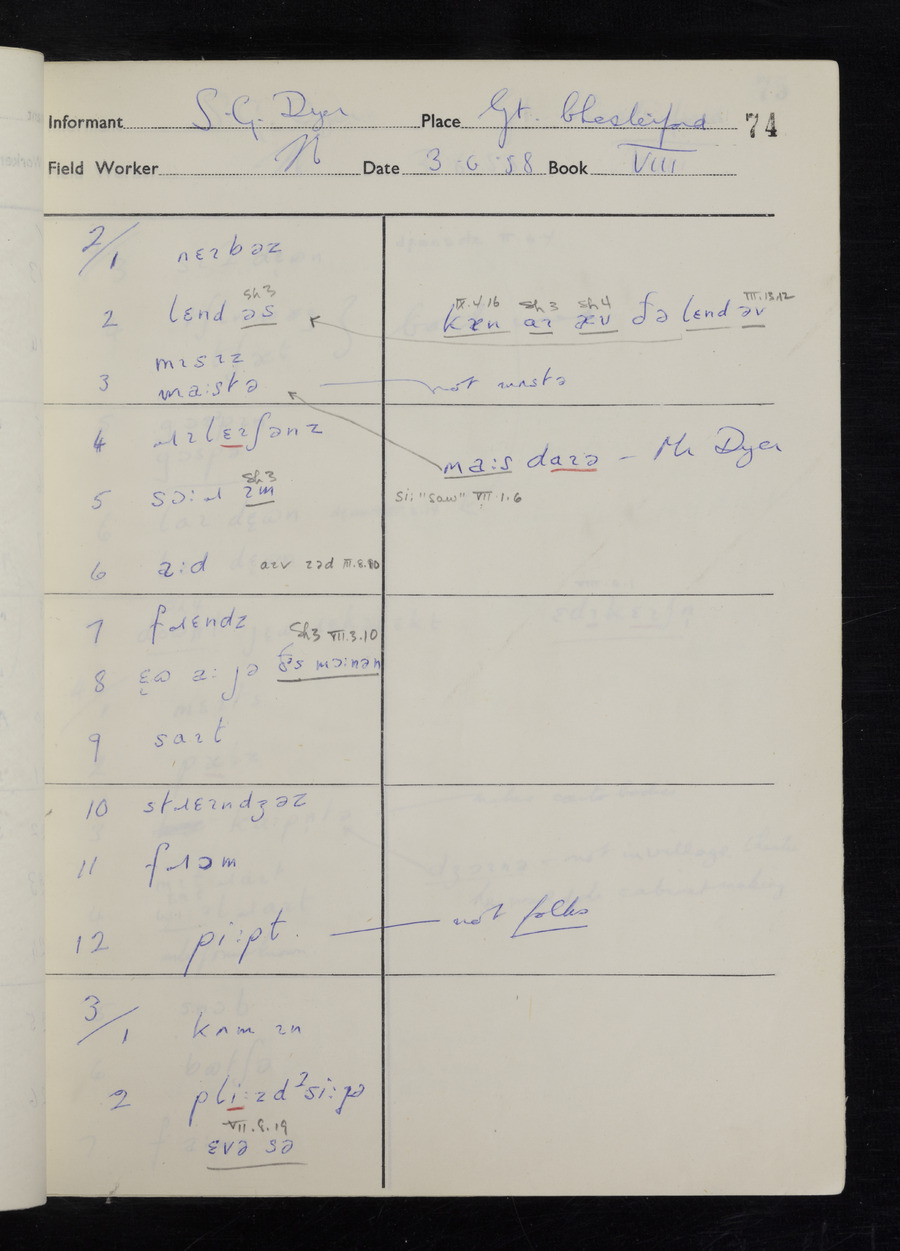 Informant S. G. Dyer Place Gt. Chesterford 74
Field Worker N Date 3.6.58 Book VIII
2/1 nɛɪbəz
sh3
2 lɛnd əs
IX.4.16 sh3 sh4 III.13.12
kæn aɪ æv ðə lɛnd əv
mɪsɪz
3 ma:stə not mɪstə
4 ɹɪlɛɪʃənz
ma:s daɪə – Mr Dyer
sh3
5 sɔ:ɹ ɪm
si: "saw" VIII.1.6
6 æ:d aɪv ɪəd
7 fɹɛndz
sh3 VII.3.10
8 ðɪs mɔ:nən
9 saɪt
10 stɹɛɪndʒəz
11 fɹɔm
12 pi:pɫ. not folks
3/1 kʌm ɪn
2 pli:zd ʔsi:jə
VII.8.19
ɛvə sə